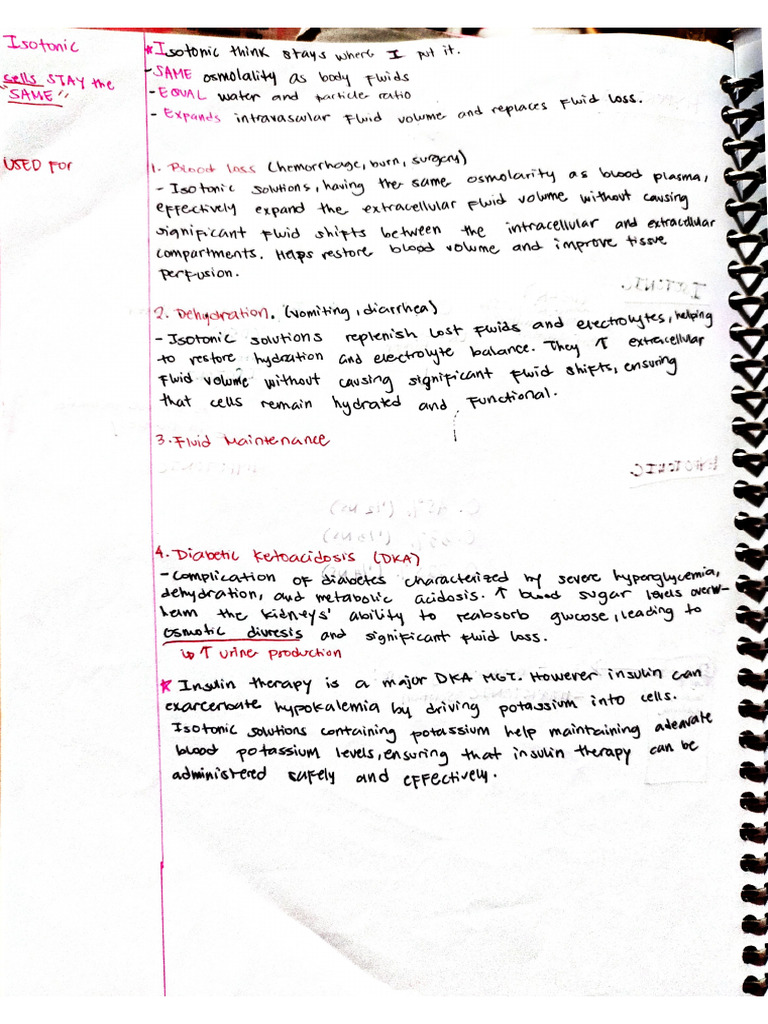 Isotonic
cells STAY the
"SAME"
* Isotonic think stays where I put it.
- SAME osmolality as body fluids
- EQUAL water and particle ratio
- Expands intravascular fluid volume and replaces fluid loss.
USED FOR
1. Blood loss (hemorrhage, burn, surgery)
- Isotonic solutions, having the same osmolarity as blood plasma,
effectively expand the extracellular fluid volume without causing
significant fluid shifts between the intracellular and extracellular
compartments. Helps restore blood volume and improve tissue
perfusion.
2. Dehydration. (vomiting, diarrhea)
- Isotonic solutions replenish lost fluids and electrolytes, helping
to restore hydration and electrolyte balance. They ↑ extracellular
fluid volume without causing significant fluid shifts, ensuring
that cells remain hydrated and functional.
3. Fluid Maintenance
4. Diabetic Ketoacidosis (DKA)
- complication of diabetes characterized by severe hyperglycemia,
dehydration, and metabolic acidosis. ↑ blood sugar levels overw-
helm the kidneys' ability to reabsorb glucose, leading to
osmotic diuresis and significant fluid loss.
↳ ↑ urine production
* Insulin therapy is a major DKA MGT. However insulin can
exarcerbate hypokalemia by driving potassium into cells.
Isotonic solutions containing potassium help maintaining adequate
blood potassium levels, ensuring that insulin therapy can be
administered safely and effectively.